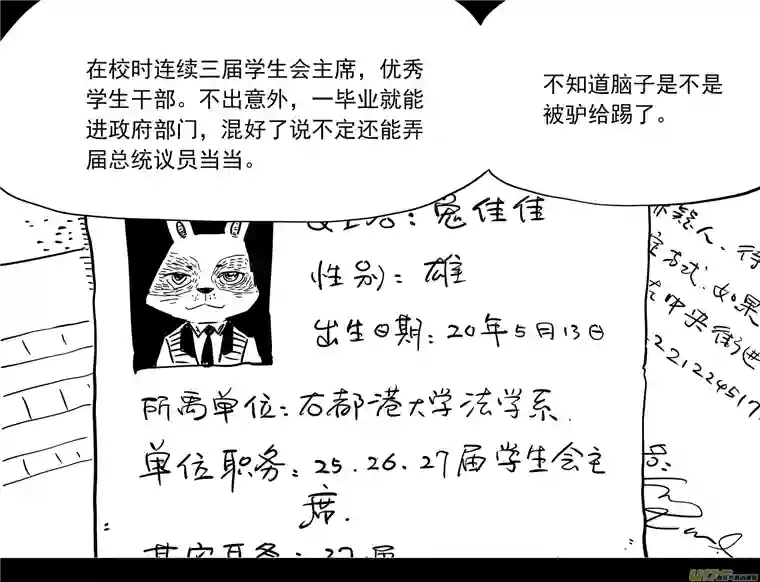 在校时连续三届学生会主席，优秀
学生干部。不出意外，一毕业就能
进政府部门，混好了说不定还能弄
届总统议员当当。
不知道脑子是不是
被驴给踢了。
名：兔佳佳
性别：雄
出生日期：20年5月13日
所属单位：右都港大学法学系.
单位职务：25.26.27届学生会主
席.
其它职务：27届
嫌疑人、待
定方式.如果
在中央街进
221224517